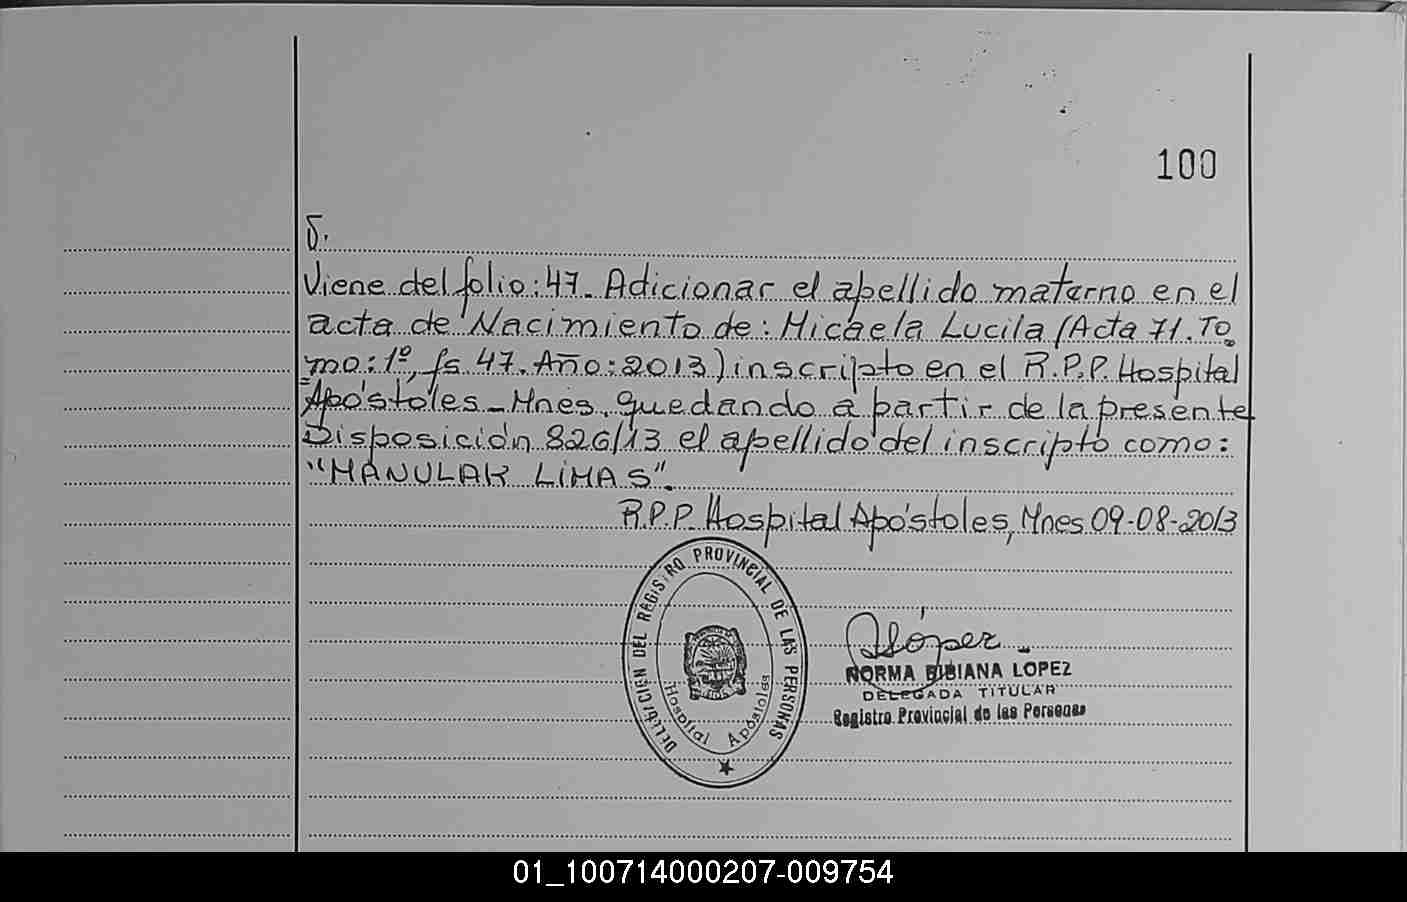 100
5.
Viene del folio: 47. Adicionar el apellido materno en el
acta de Nacimiento de: Micaela Lucila (Acta 71. To
mo: 1º, fs 47. Año: 2013) inscripto en el R.P.P. Hospital
Apóstoles - Mnes, quedando a partir de la presente
Disposición 826/13 el apellido del inscripto como:
"MANULAK LIMAS".
R.P.P. Hospital Apóstoles, Mnes 09-08-2013
DELEGACIÓN DEL REGISTRO PROVINCIAL DE LAS PERSONAS
Hospital Apóstoles
López
NORMA BIBIANA LOPEZ
DELEGADA TITULAR
Registro Provincial de las Personas
01_100714000207-009754